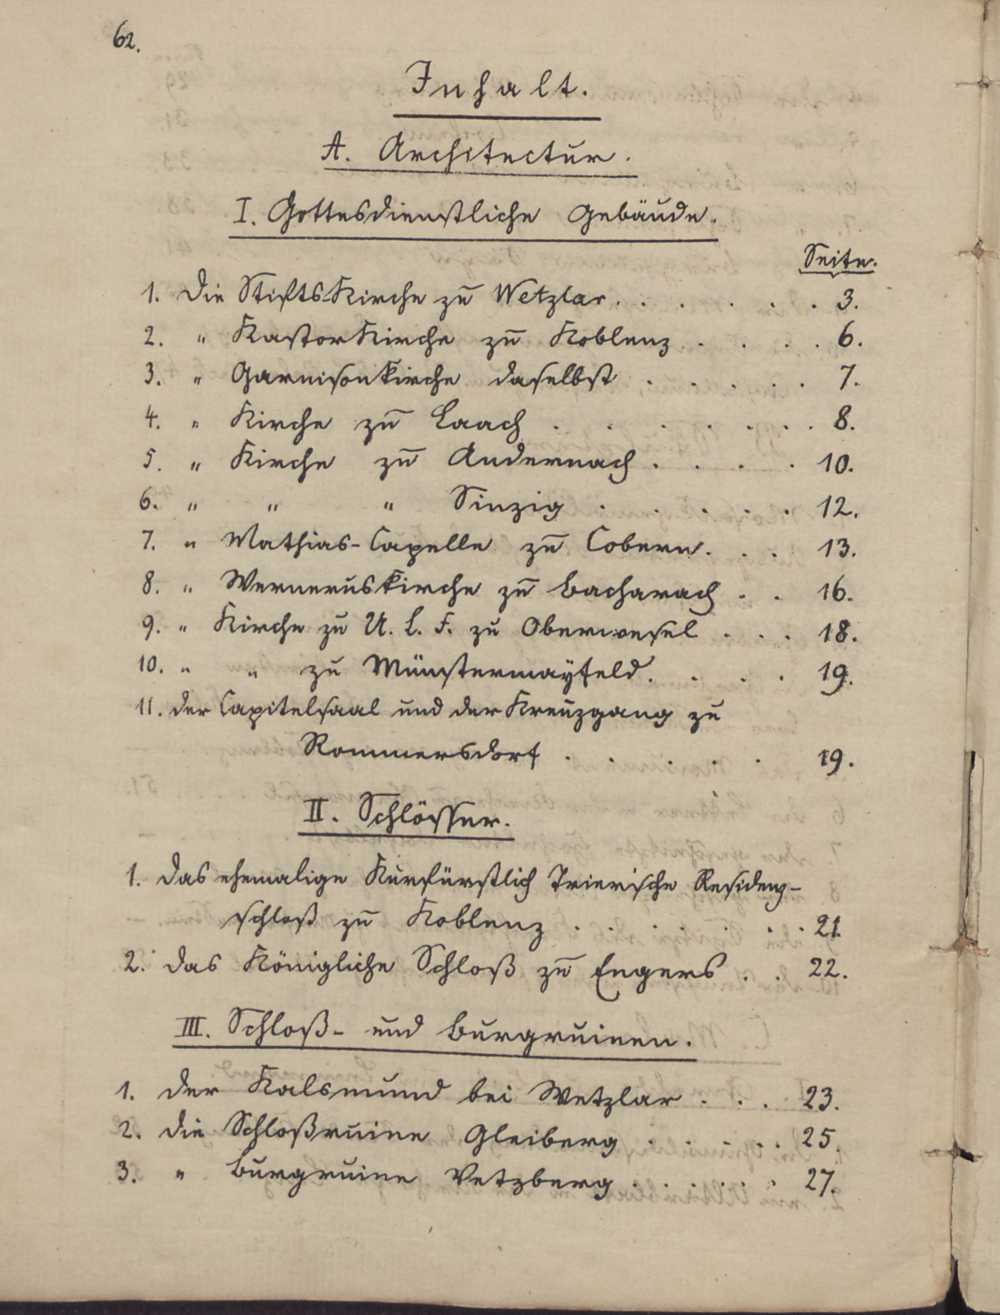 62.
Inhalt.
A. Architectur.
I. Gottesdienstliche Gebäude.
Seite.
1. Die StiftsKirche zu Wetzlar. . . . . . . 3.
2. " KastorKirche zu Koblenz . . . . 6.
3. " Garnisonkirche daselbst . . . . . 7.
4. " Kirche zu Laach . . . . . . . . 8.
5. " Kirche zu Andernach . . . . 10.
6. " " " Sinzig . . . . . 12.
7. " Mathias-Capelle zu Cobern. . . 13.
8. " Werneruskirche zu Bacharach . . 16.
9. " Kirche zu U. L. F. zu Oberwesel . . . 18.
10. " " zu Münstermayfeld. . . . 19.
11. der Capitelsaal und der Kreuzgang zu
Rommersdorf . . . . . . 19.
II. Schlösser.
1. das ehemalige Kurfürstlich Trierische Residenz-
schloß zu Koblenz . . . . . . . 21.
2. das Königliche Schloß zu Engers . . 22.
III. Schloß- und Burgruinen.
1. der Kalsmund bei Wetzlar . . . 23.
2. die Schloßruine Gleiberg . . . . . 25.
3. " Burgruine Vetzberg . . . . . . 27.